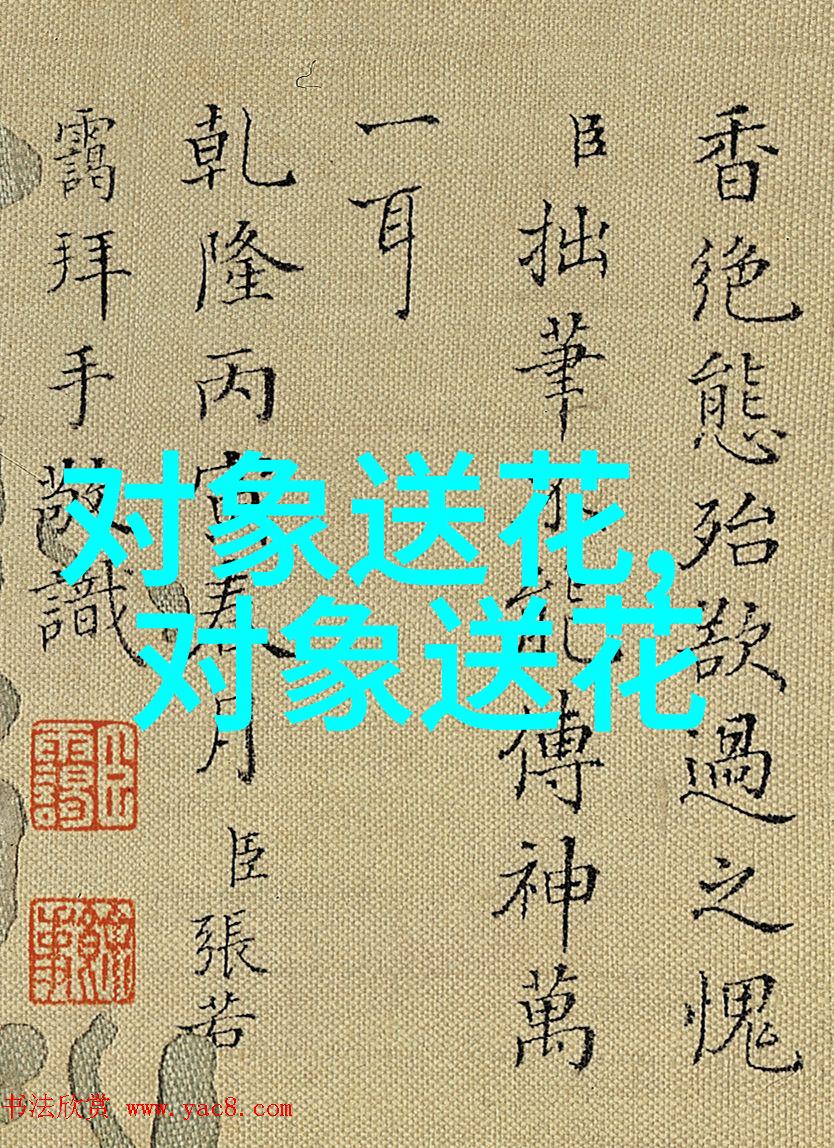 香絶態殆欲過之愧
臣拙筆不能傳神萬
一耳
乾隆丙寅春月臣張若
靄拜手敬識
对象送花,
对象送花
书法欣赏 www.yac8.com